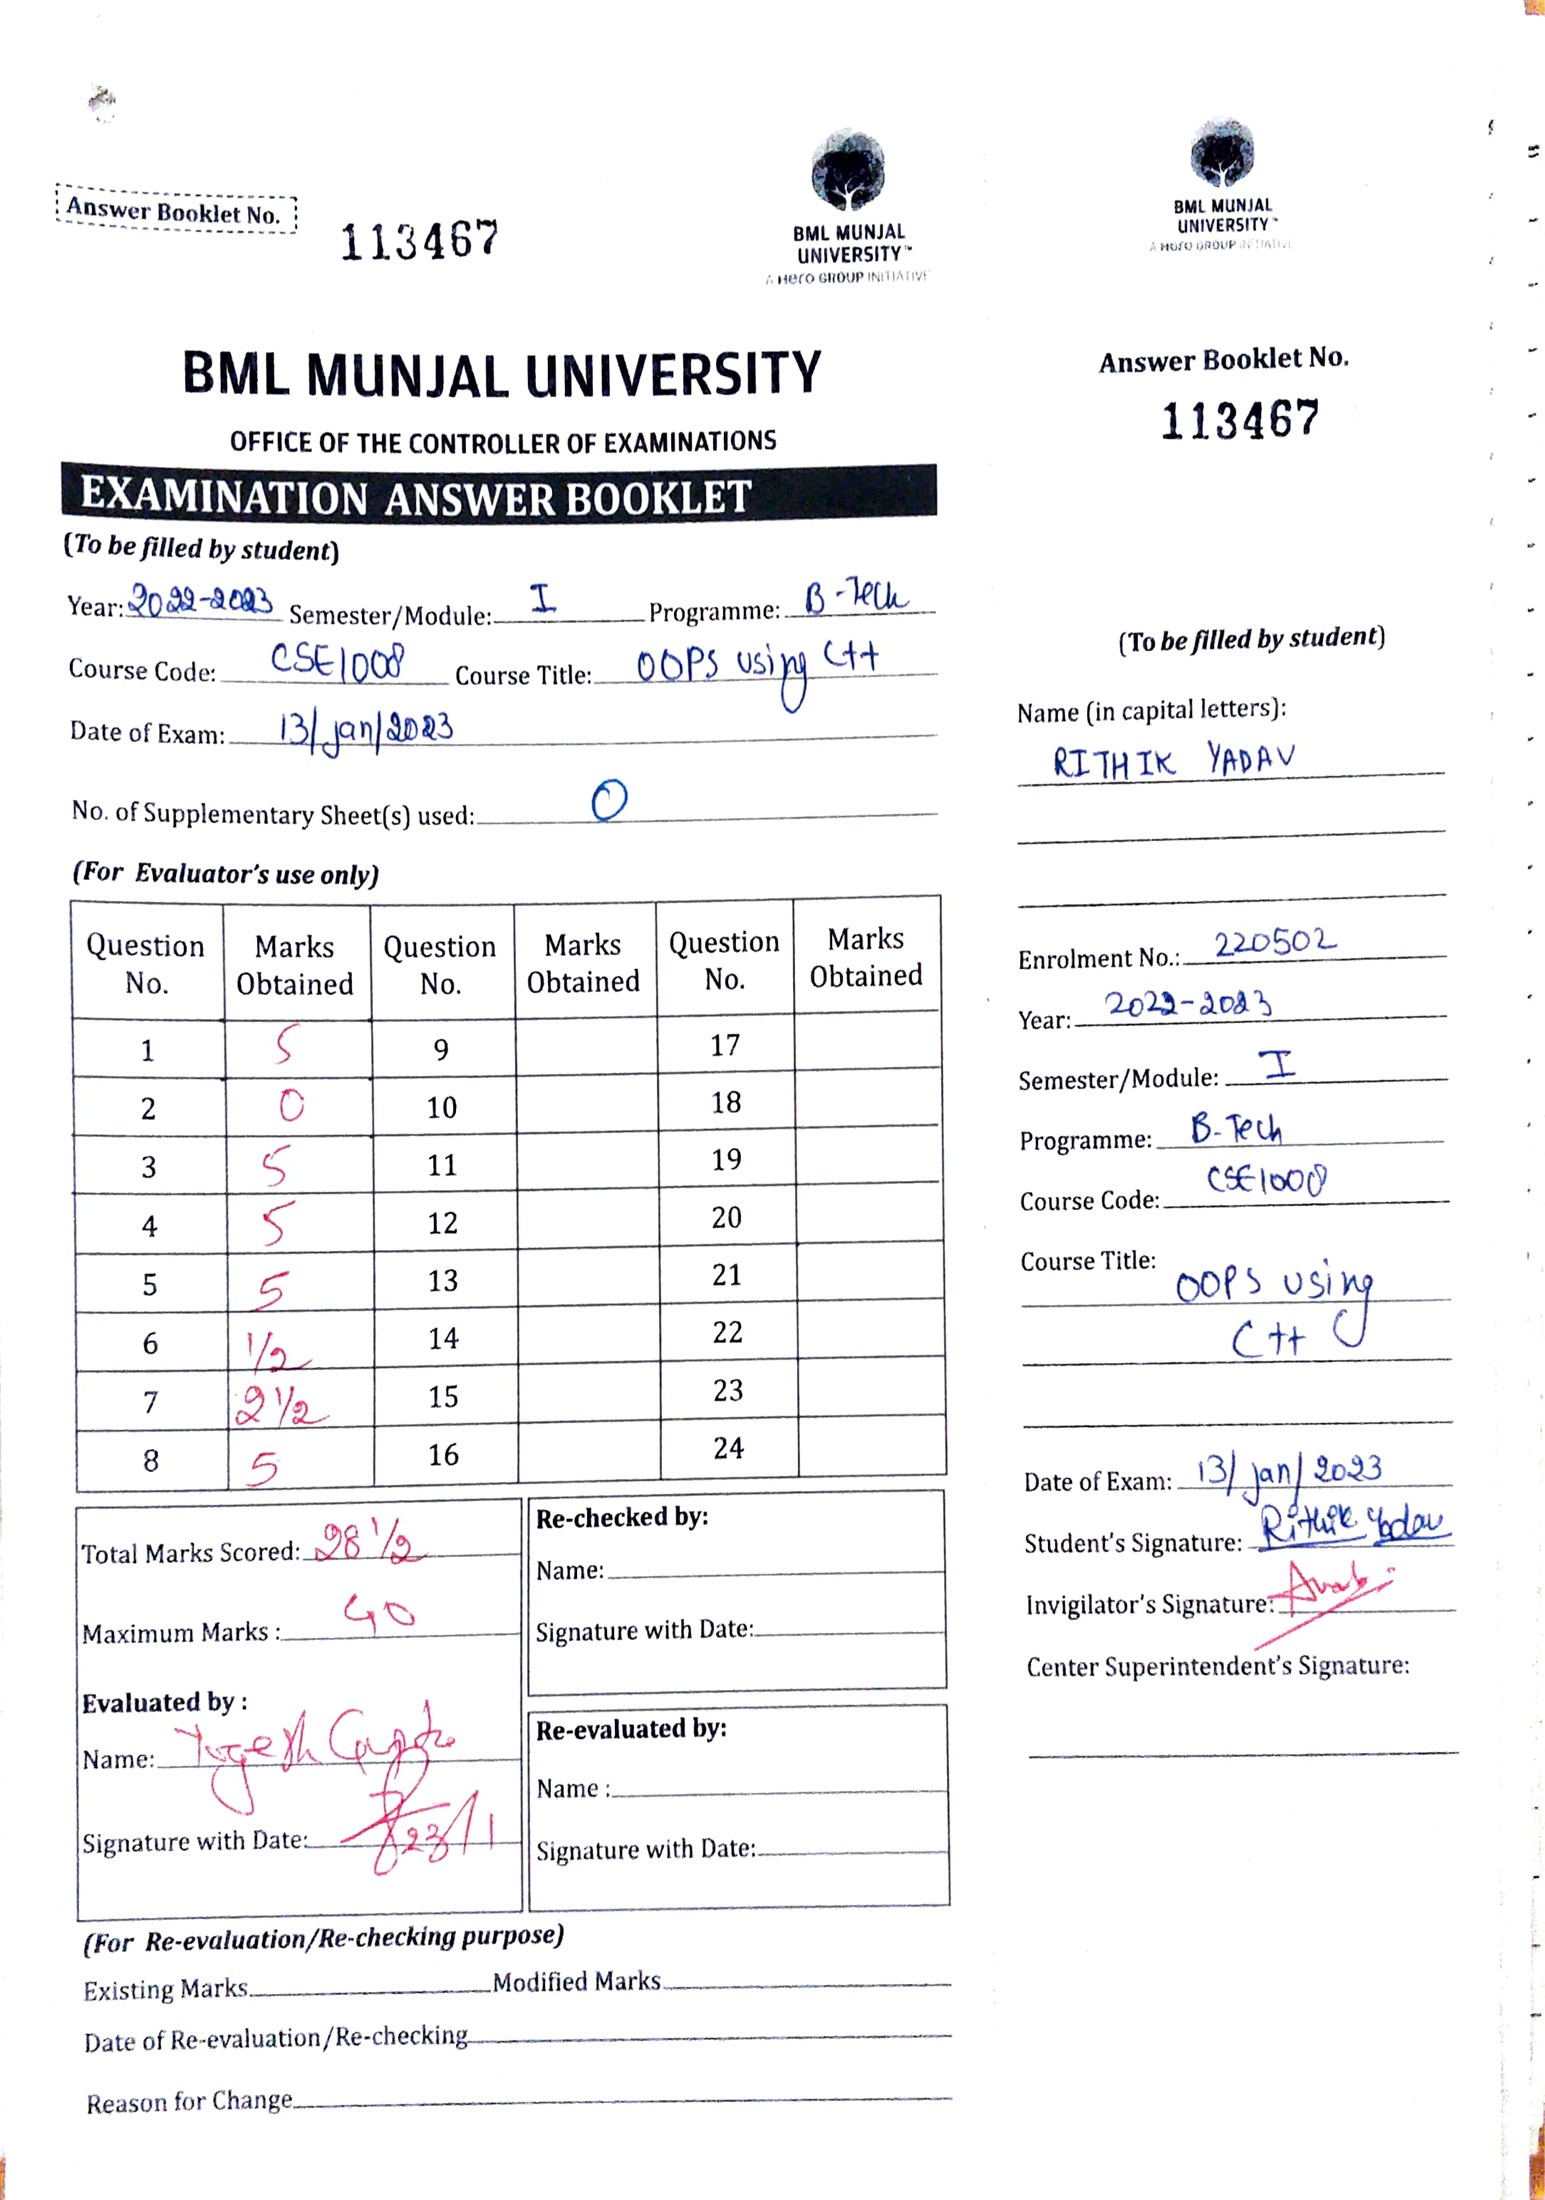 Answer Booklet No.
113467
BML MUNJAL
UNIVERSITY™
A Hero GROUP INITIATIVE
BML MUNJAL UNIVERSITY
OFFICE OF THE CONTROLLER OF EXAMINATIONS
EXAMINATION ANSWER BOOKLET
(To be filled by student)
Year: 2022-2023 Semester/Module: I Programme: B-Tech
Course Code: CSE1008 Course Title: OOPS using C++
Date of Exam: 13/jan/2023
No. of Supplementary Sheet(s) used: 0
(For Evaluator's use only)
Question No. Marks Obtained Question No. Marks Obtained Question No. Marks Obtained
1 5 9 17
2 0 10 18
3 5 11 19
4 5 12 20
5 5 13 21
6 1/2 14 22
7 2 1/2 15 23
8 5 16 24
Total Marks Scored: 28 1/2
Maximum Marks : 40
Evaluated by :
Name: Yogesh Gupta
Signature with Date: 23/1
Re-checked by:
Name:
Signature with Date:
Re-evaluated by:
Name :
Signature with Date:
(For Re-evaluation/Re-checking purpose)
Existing Marks Modified Marks
Date of Re-evaluation/Re-checking
Reason for Change
BML MUNJAL
UNIVERSITY™
A Hero GROUP INITIATIVE
Answer Booklet No.
113467
(To be filled by student)
Name (in capital letters):
RITHIK YADAV
Enrolment No.: 220502
Year: 2022-2023
Semester/Module: I
Programme: B-Tech
Course Code: CSE1008
Course Title:
OOPS using
C++
Date of Exam: 13/jan/2023
Student's Signature: Rithik Yadav
Invigilator's Signature:
Center Superintendent's Signature: